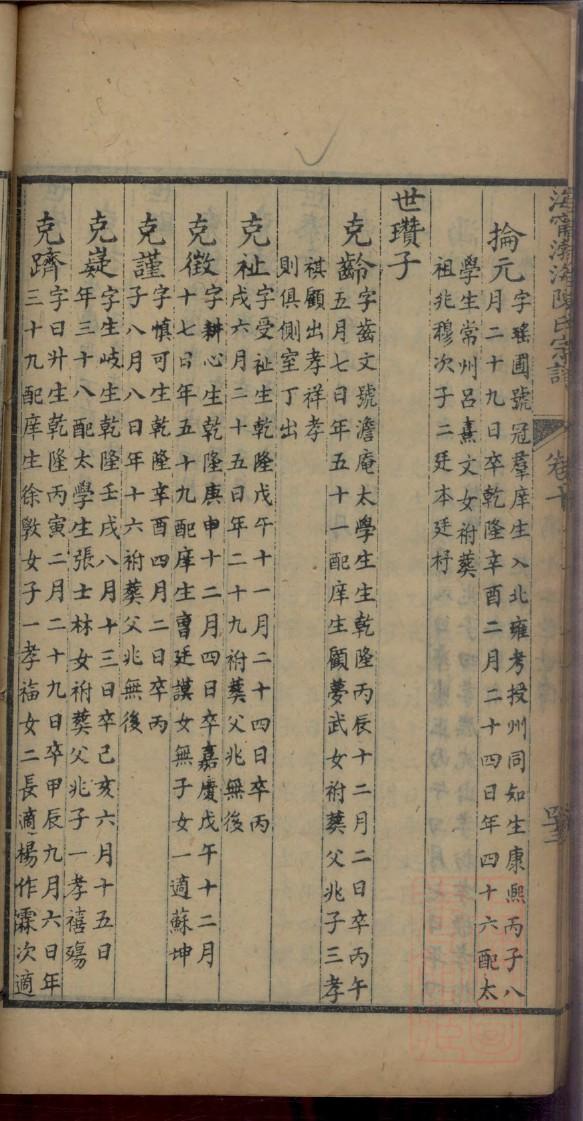 海甯渤海陳氏宗譜
卷十
掄元
字瑤圃號冠羣庠生入北雍考授州同知生康熙丙子八
月二十九日卒乾隆辛酉二月二十四日年四十六配太
學生常州呂熹文女祔葬
祖兆穆次子二廷本廷杍
世瓚子
克齡
字齒文號澹庵太學生生乾隆丙辰十二月二日卒丙午
五月七日年五十一配庠生顧夢武女祔葬父兆子三孝
祺顧出孝祥孝
則俱側室丁出
克祉
字受祉生乾隆戊午十一月二十四日卒丙
戌六月二十五日年二十九祔葬父兆無後
克徵
字耕心生乾隆庚申十二月四日卒嘉慶戊午十二月
十七日年五十九配庠生曹廷謨女無子女一適蘇坤
克謹
字慎可生乾隆辛酉四月二日卒丙
子八月八日年十六祔葬父兆無後
克嶷
字生岐生乾隆壬戌八月十三日卒己亥六月十五日
年三十八配太學生張士林女祔葬父兆子一孝禧殤
克躋
字曰升生乾隆丙寅二月二十九日卒甲辰九月六日年
三十九配庠生徐敦女子一孝福女二長適楊作霖次適